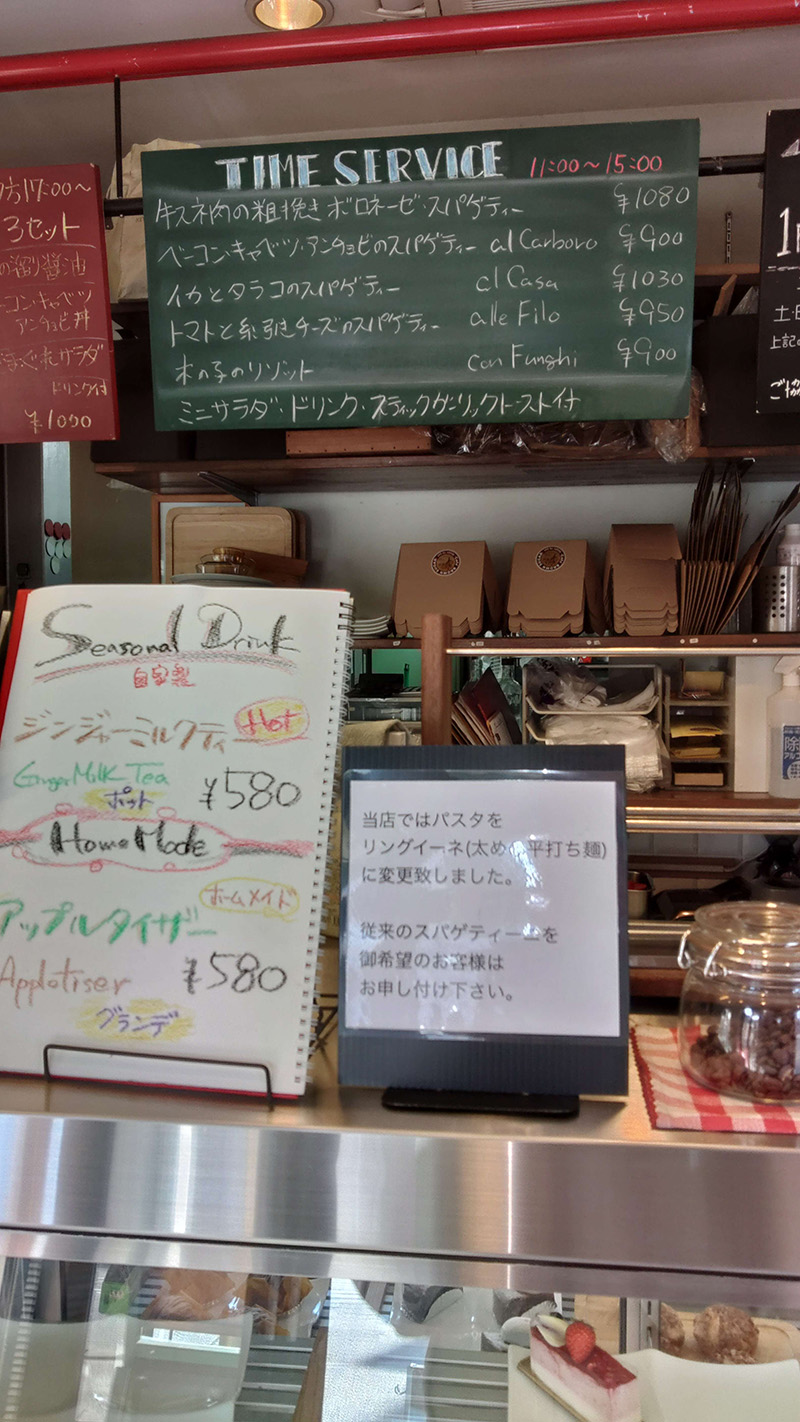 TIME SERVICE 11:00～15:00
牛スネ肉の粗挽きボロネーゼ・スパゲティー ¥1080
ベーコン・キャベツ・アンチョビのスパゲティー al Carboro ¥900
イカとタラコのスパゲティー al Casa ¥1030
トマトと糸引きチーズのスパゲティー alle Filo ¥950
木の子のリゾット con Funghi ¥900
ミニサラダ・ドリンク・スティックガーリックトースト付
17:00～
3セット
醤油
コン・キャベツ
アンチョビ丼
まぐれサラダ
ドリンク付
¥1000
土・日
上記の
ご協
Seasonal Drink
自家製
ジンジャーミルクティー Hot
Ginger Milk Tea ¥580
ポット
Home Made
ホームメイド
アップルタイザー
Appletiser ¥580
グランデ
当店ではパスタを
リングイーネ(太め 平打ち麺)
に変更致しました。
従来のスパゲティーニを
御希望のお客様は
お申し付け下さい。
除
アルコ